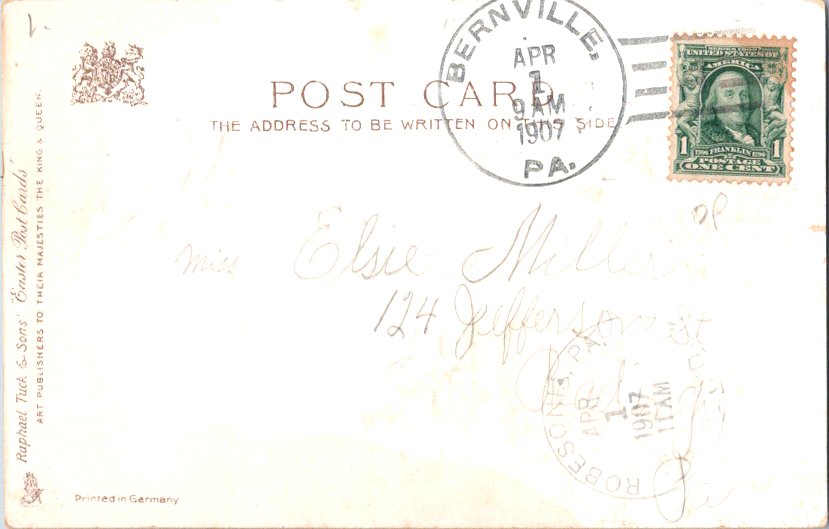 POST CARD
THE ADDRESS TO BE WRITTEN ON THIS SIDE
BERNVILLE,
APR
1
9 AM
1907
PA.
SERIES 1902
UNITED STATES OF
AMERICA
1 1706 FRANKLIN 1790 1
POSTAGE
ONE CENT
Miss Elsie Miller
124 Jefferson St
Pa
ROBESONIA, PA.
APR
1
1907
11 AM
Raphael Tuck & Sons' "Easter Post Cards"
ART PUBLISHERS TO THEIR MAJESTIES THE KING & QUEEN.
Printed in Germany